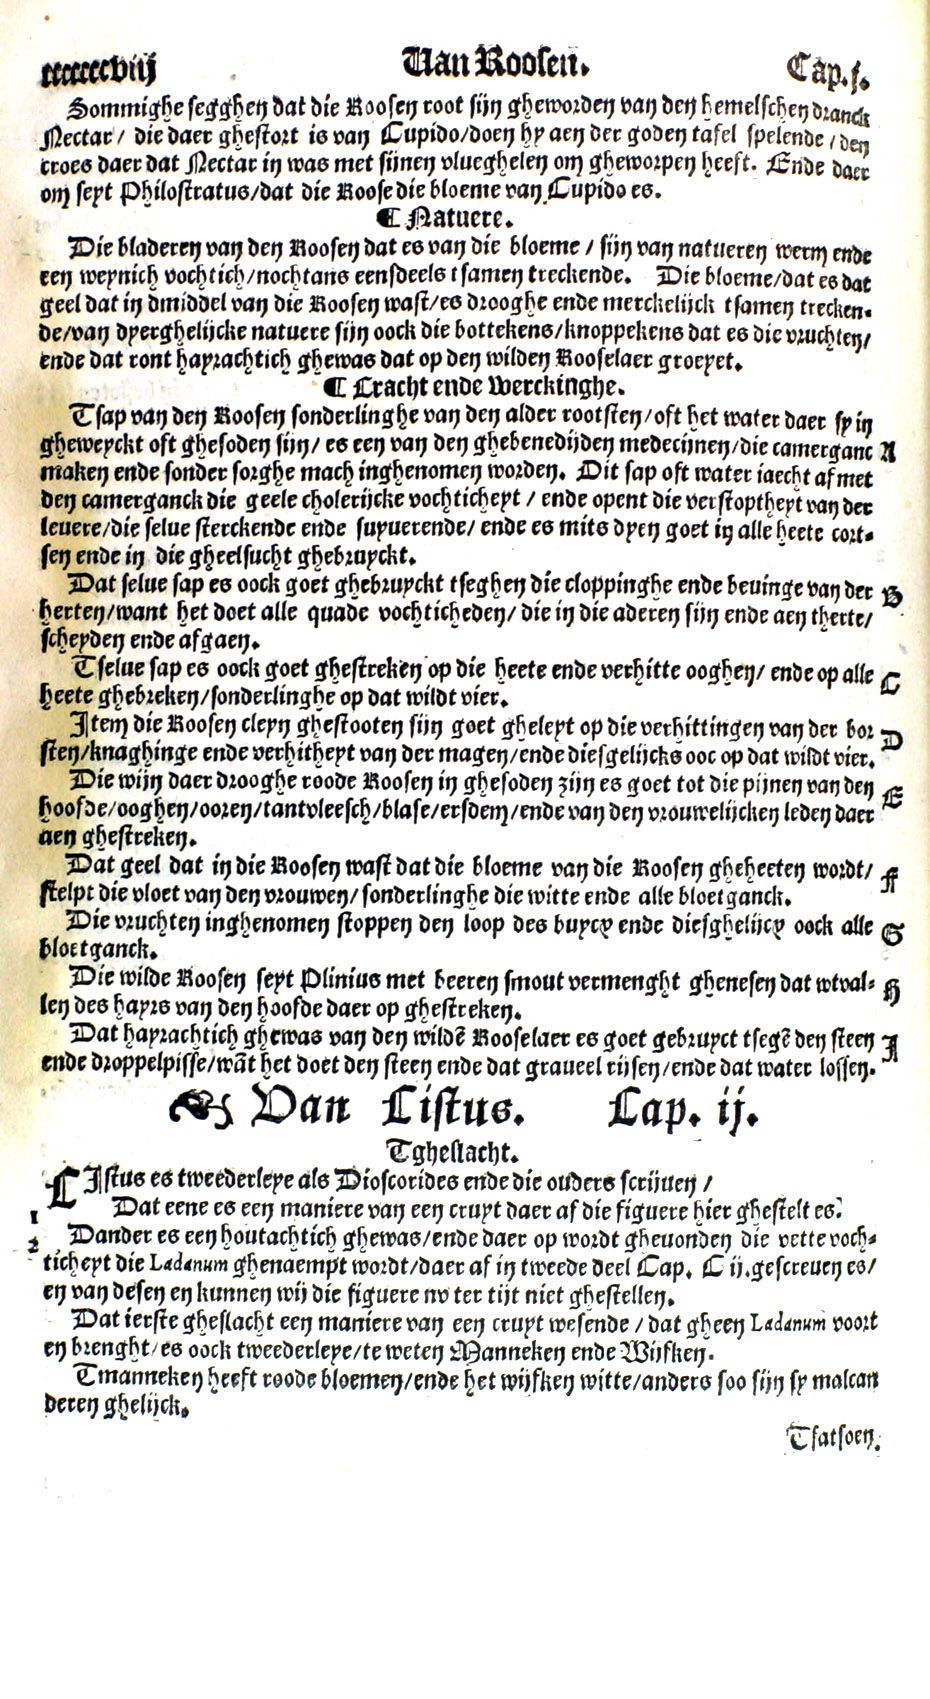 ccccccviij Van Roosen. Cap.j.
Sommighe segghen dat die Roosen root sijn gheworden van den hemelschen dranck
Nectar/ die daer ghestort is van Cupido/doen hy aen der goden tafel spelende/den
croes daer dat Nectar in was met sijnen vlueghelen om gheworpen heeft. Ende daer
om seyt Philostratus/dat die Roose die bloeme van Cupido es.
¶ Natuere.
Die bladeren van den Roosen dat es van die bloeme / sijn van natueren werm ende
een weynich vochtich/nochtans eensdeels tsamen treckende. Die bloeme/dat es dat
geel dat in dmiddel van die Roosen wast/es drooghe ende merckelijck tsamen trecken-
de/van dyerghelijcke natuere sijn oock die bottekens/knoppekens dat es die vruchten/
ende dat ront hayrachtich ghewas dat op den wilden Rooselaer groeyet.
¶ Cracht ende Werckinghe.
Tsap van den Roosen sonderlinghe van den alder rootsten/oft het water daer sy in
gheweyckt oft ghesoden sijn/ es een van den ghebenedijden medecijnen/die camerganc A
maken ende sonder sorghe mach inghenomen worden. Dit sap oft water iaecht af met
den camerganck die geele cholerijcke vochticheyt / ende opent die verstoptheyt van der
levere/die selue sterckende ende suyuerende/ ende es mits dyen goet in alle heete cort-
sen ende in die gheelsucht ghebruyckt.
Dat selue sap es oock goet ghebruyckt tseghen die cloppinghe ende beuinge van der B
herten/want het doet alle quade vochticheden/ die in die aderen sijn ende aen therte/
scheyden ende afgaen.
Tselue sap es oock goet ghestreken op die heete ende verhitte ooghen/ ende op alle C
heete ghebreken/sonderlinghe op dat wildt vier.
Item die Roosen cleyn ghestooten sijn goet gheleyt op die verhittingen van der bor D
sten/knaghinge ende verhitheyt van der magen/ende diesgelijcks ooc op dat wildt vier.
Die wijn daer drooghe roode Roosen in ghesoden zijn es goet tot die pijnen van den E
hoofde/ooghen/ooren/tantvleesch/blase/ersdem/ende van den vrouwelijcken leden daer
aen ghestreken.
Dat geel dat in die Roosen wast dat die bloeme van die Roosen gheheeten wordt/ F
stelpt die vloet van den vrouwen/ sonderlinghe die witte ende alle bloetganck.
Die vruchten inghenomen stoppen den loop des buycx ende diesghelijcx oock alle G
bloetganck.
Die wilde Roosen seyt Plinius met beeren smout vermenght ghenesen dat wtval- H
len des hayrs van den hoofde daer op ghestreken.
Dat hayrachtich ghewas van den wildē Rooselaer es goet gebruyct tsegē den steen I
ende droppelpisse/wāt het doet den steen ende dat graueel rijsen/ende dat water lossen.
Van Cistus. Cap. ij.
Tgheslacht.
CIstus es tweederleye als Dioscorides ende die ouders scrijuen /
1 Dat eene es een maniere van een cruyt daer af die figuere hier ghestelt es.
2 Dander es een houtachtich ghewas/ende daer op wordt gheuonden die vette voch-
ticheyt die Ladanum ghenaempt wordt/daer af in tweede deel Cap. C ij.gescreuen es/
en van desen en kunnen wij die figuere nv ter tijt niet ghestellen.
Dat ierste gheslacht een maniere van een cruyt wesende / dat gheen Ladanum voort
en brenght/es oock tweederleye/te weten Manneken ende Wijfken.
Tmanneken heeft roode bloemen/ende het wijfken witte/anders soo sijn sy malcan
deren ghelijck.
Tsatsoen.